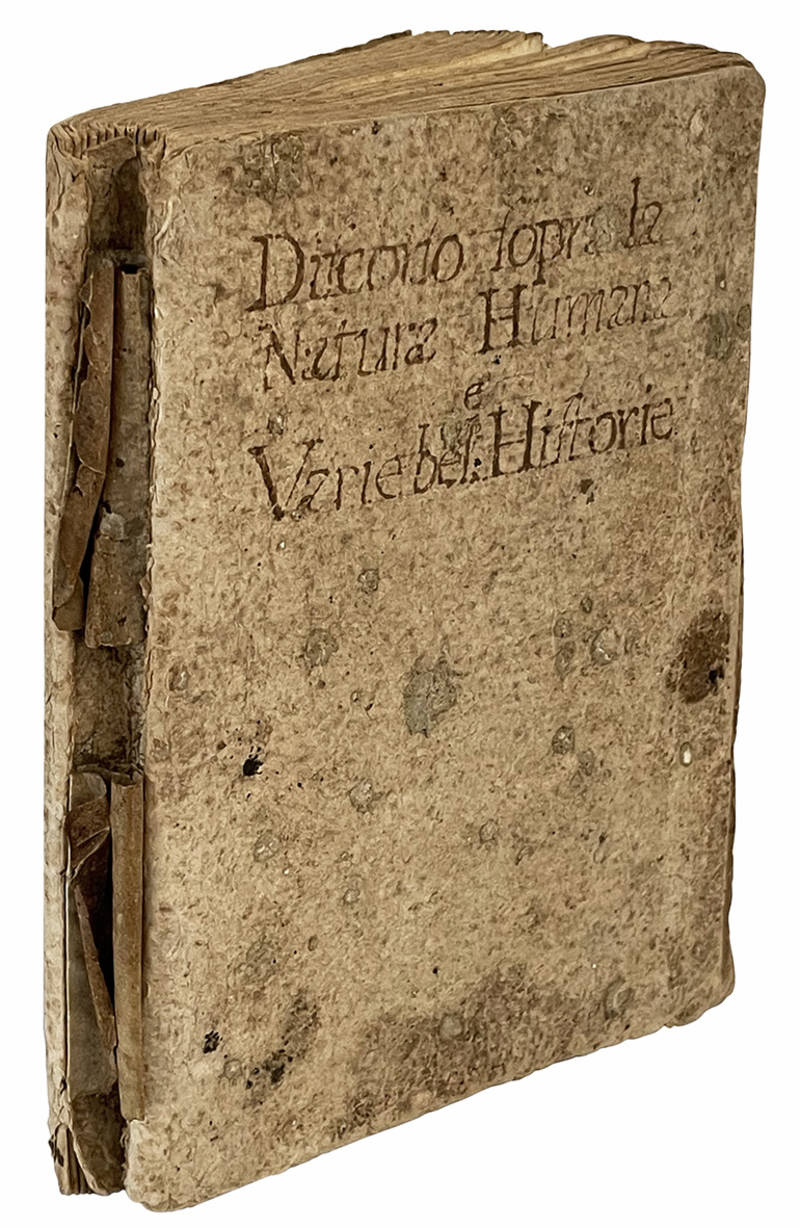 Diſcorſo ſopra la
Natura Humana
e
Varie bel: Hiſtorie